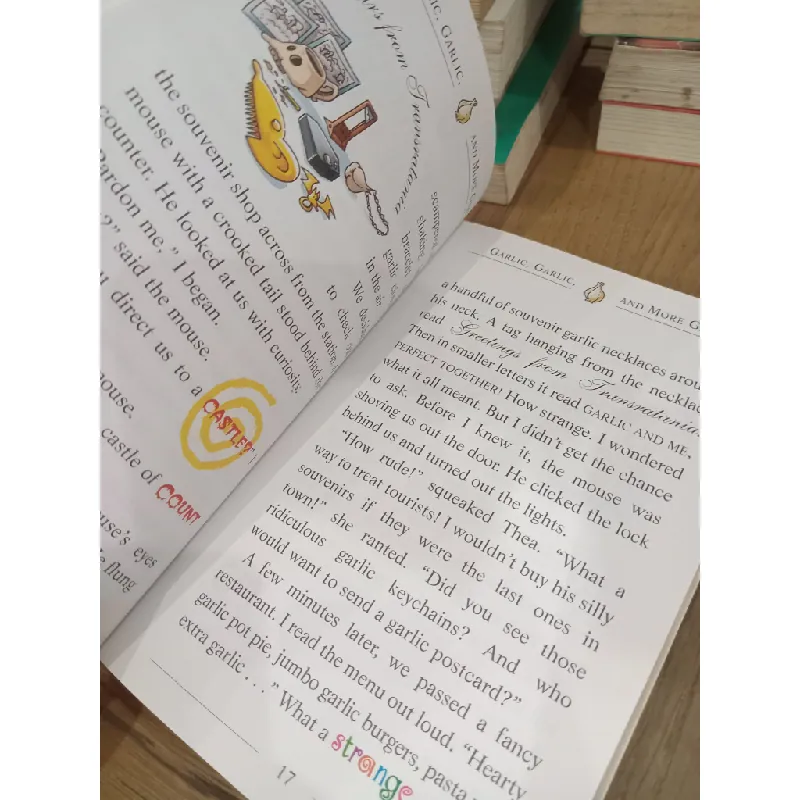 IC, GARLIC,
AND MORE
urs from Transratonia
the souvenir shop across from the station.
mouse with a crooked tail stood behind the
counter. He looked at us with curiosity.
Pardon me," I began.
?" said the mouse.
direct us to a
CASTLE?
mouse.
castle of COUNT
use's eyes
e flung
scampere
bracelet
garlic
in the air
We
to check
GARLIC, GARLIC,
AND MORE G
a handful of souvenir garlic necklaces arou
his neck. A tag hanging from the necklac
read Greetings from Transratania.
Then in smaller letters it read GARLIC AND ME,
PERFECT TOGETHER! How strange. I wondered
what it all meant. But I didn't get the chance
to ask. Before I knew it, the mouse was
shoving us out the door. He clicked the lock
behind us and turned out the lights.
"How rude!" squeaked Thea. "What a
way to treat tourists! I wouldn't buy his silly
souvenirs if they were the last ones in
town!" she ranted. "Did you see those
ridiculous garlic keychains? And who
would want to send a garlic postcard?"
A few minutes later, we passed a fancy
restaurant. I read the menu out loud. "Hearty
garlic pot pie, jumbo garlic burgers, pasta
extra garlic . . ." What a strange
17